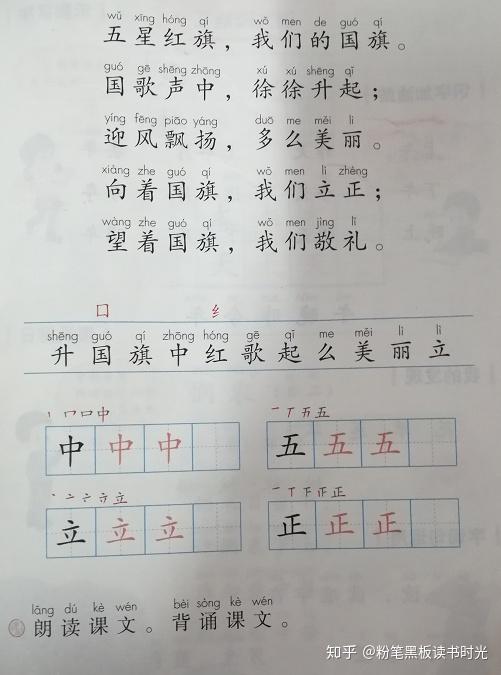 wǔ xīng hóng qí wǒ men de guó qí
五星红旗，我们的国旗。
guó gē shēng zhōng xú xú shēng qǐ
国歌声中，徐徐升起；
yíng fēng piāo yáng duō me měi lì
迎风飘扬，多么美丽。
xiàng zhe guó qí wǒ men lì zhèng
向着国旗，我们立正；
wàng zhe guó qí wǒ men jìng lǐ
望着国旗，我们敬礼。
口 纟
shēng guó qí zhōng hóng gē qǐ me měi lì lì
升国旗中红歌起么美丽立
中中中 五五五
立立立 正正正
lǎng dú kè wén bèi sòng kè wén
朗读课文。背诵课文。
知乎 @粉笔黑板读书时光